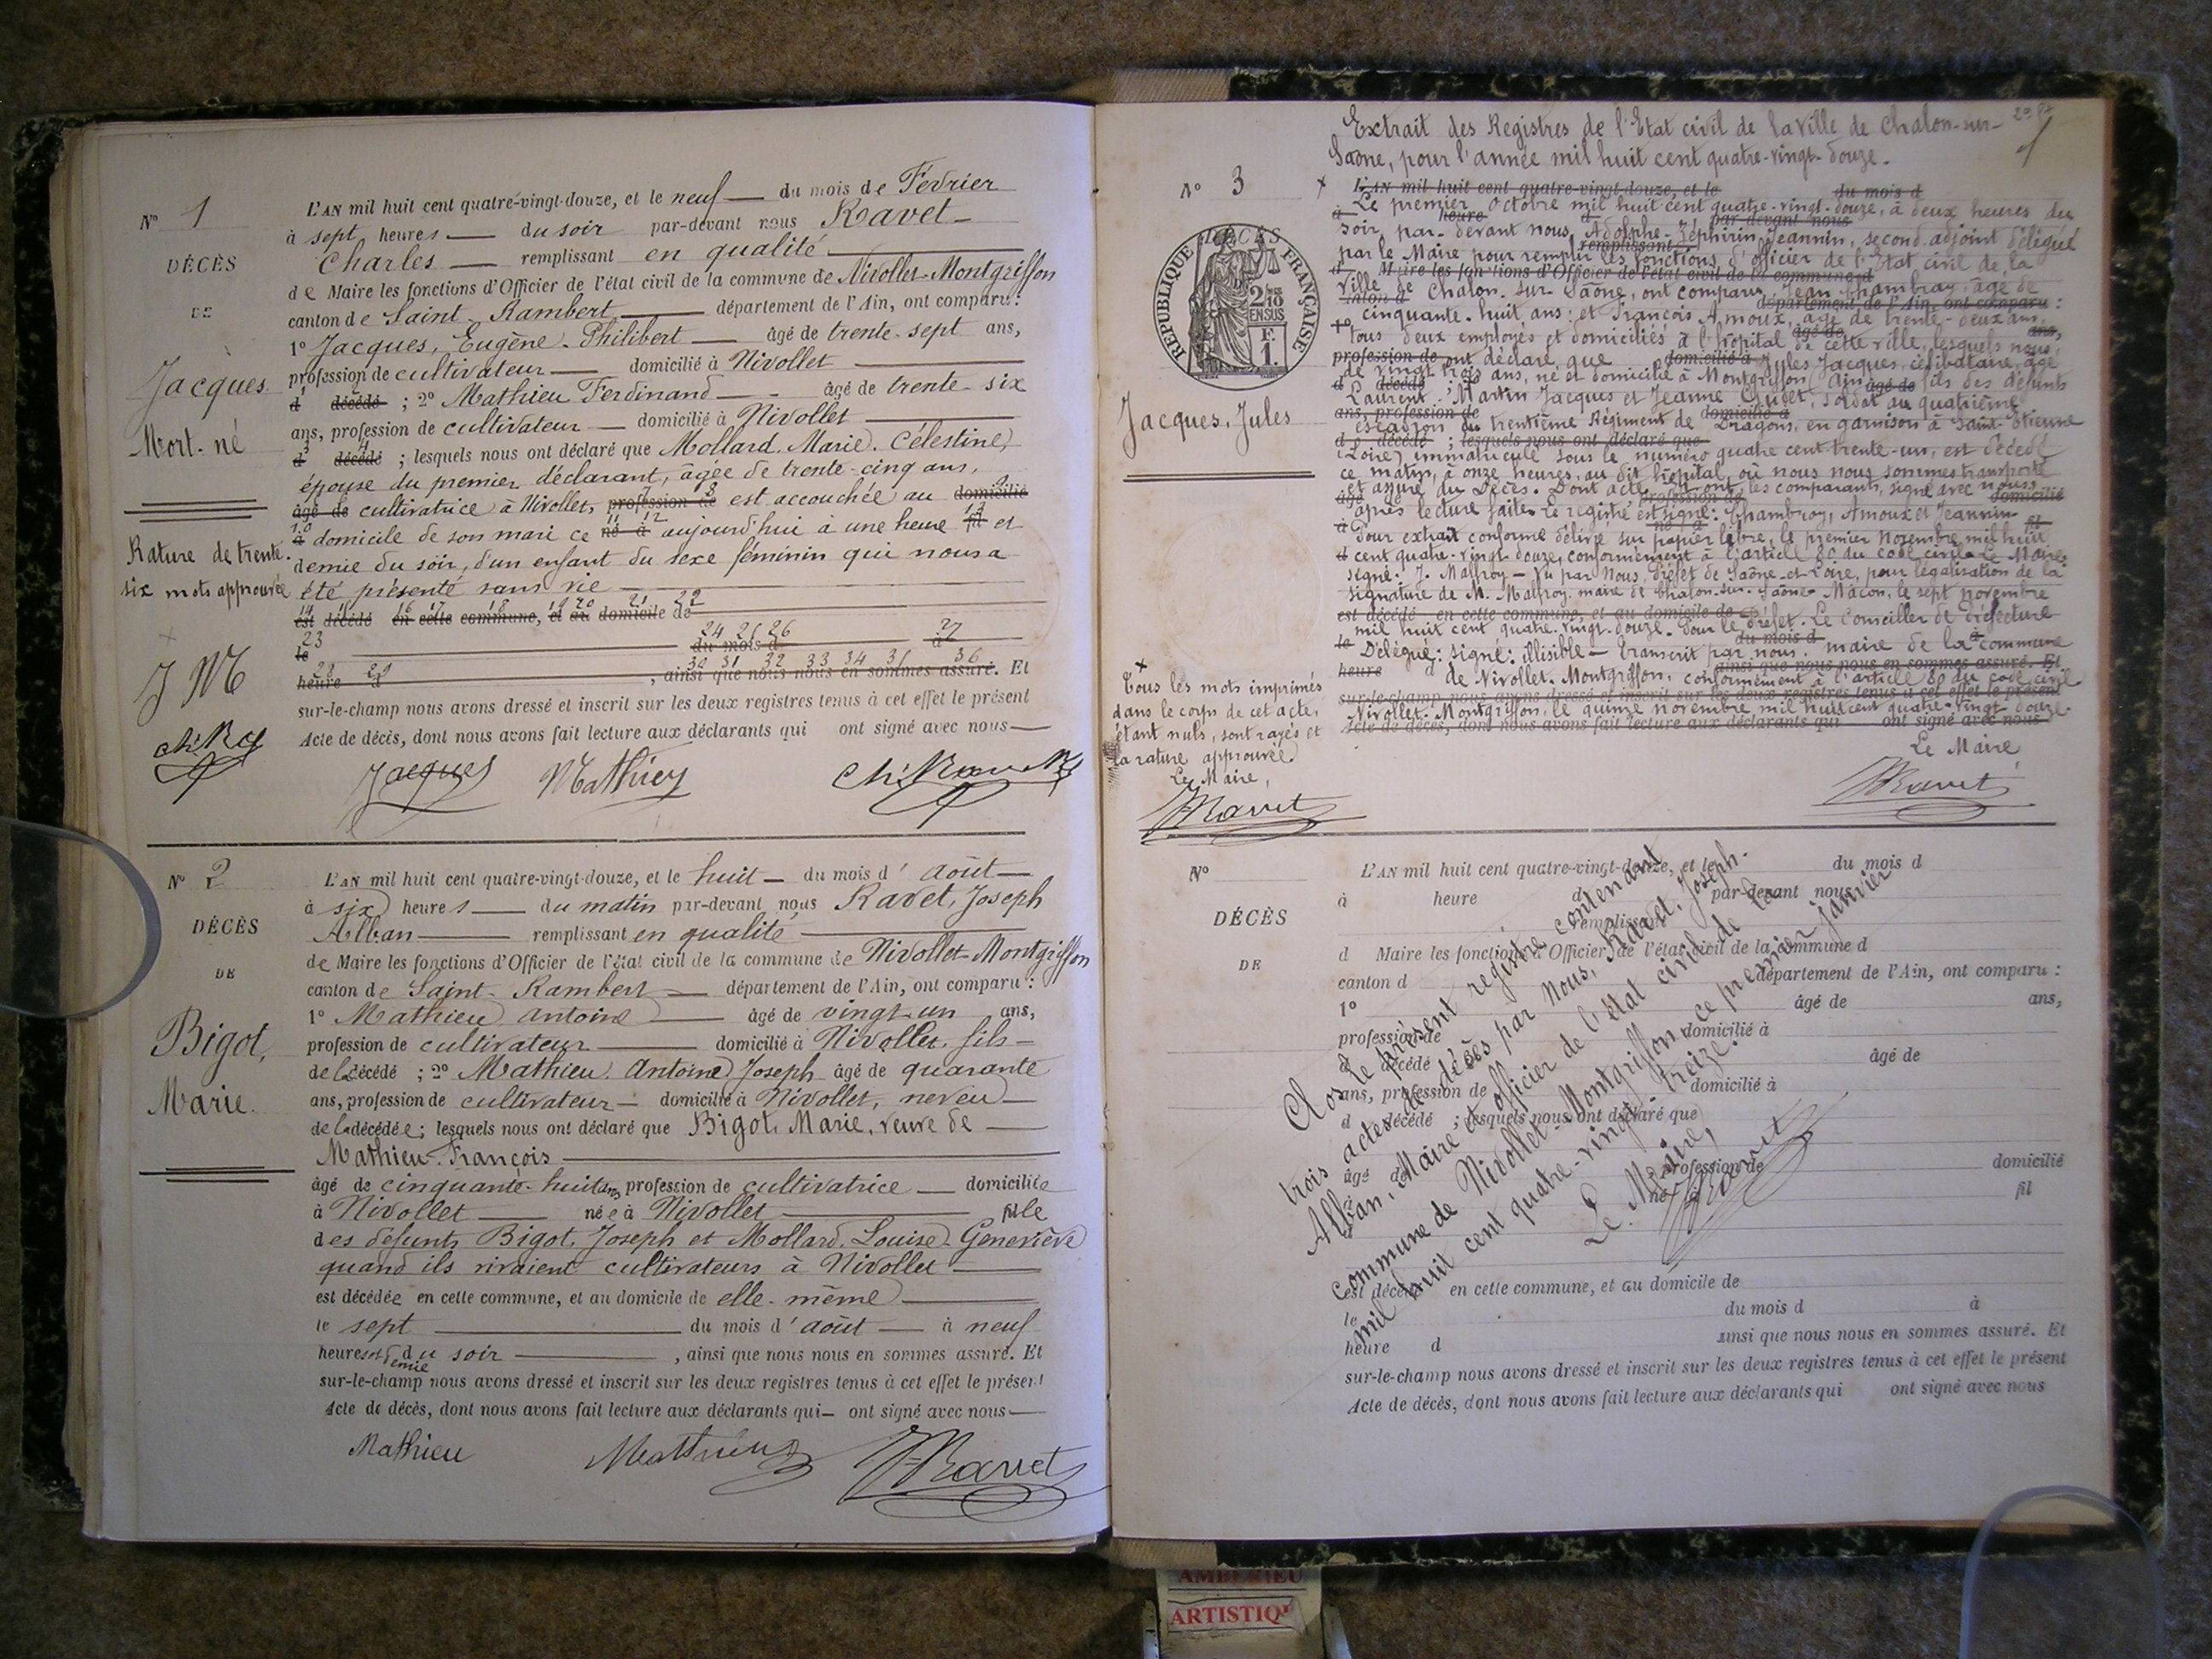 N° 1
DÉCÈS
DE
Jacques
Mort-né
Rature de trente-
six mots approuvée
J M
L'AN mil huit cent quatre-vingt-douze, et le neuf du mois de Fevrier
à sept heures du soir par-devant nous Ravet
Charles remplissant en qualité
de Maire les fonctions d'Officier de l'état civil de la commune de Nivollet-Montgriffon
canton de Saint-Rambert département de l'Ain, ont comparu :
1° Jacques, Eugène-Philibert âgé de trente-sept ans,
profession de cultivateur domicilié à Nivollet
d décédé ; 2° Mathieu Ferdinand âgé de trente-six
ans, profession de cultivateur domicilié à Nivollet
d décédé ; lesquels nous ont déclaré que Mollard, Marie, Célestine,
épouse du premier déclarant, âgée de trente-cinq ans,
âgé de cultivatrice à Nivollet, profession de est accouchée au domicilié
à domicile de son mari ce né à aujourd'hui à une heure fil et
demie du soir, d'un enfant du sexe féminin qui nous a
été présenté sans vie
est décédé en cette commune, et au domicile de
le du mois d à
heure d , ainsi que nous nous en sommes assuré. Et
sur-le-champ nous avons dressé et inscrit sur les deux registres tenus à cet effet le présent
Acte de décès, dont nous avons fait lecture aux déclarants qui ont signé avec nous
Jacques Mathieu Ch. Ravet
N° 2
DÉCÈS
DE
Bigot,
Marie.
L'AN mil huit cent quatre-vingt-douze, et le huit du mois d'août
à six heures du matin par-devant nous Ravet, Joseph
Alban remplissant en qualité
de Maire les fonctions d'Officier de l'état civil de la commune de Nivollet-Montgriffon
canton de Saint-Rambert département de l'Ain, ont comparu :
1° Mathieu Antoine âgé de vingt-un ans,
profession de cultivateur domicilié à Nivollet, fils
de la décédé ; 2° Mathieu, Antoine Joseph âgé de quarante
ans, profession de cultivateur domicilié à Nivollet, neveu
de la décédée ; lesquels nous ont déclaré que Bigot, Marie, veuve de
Mathieu-François
âgé de cinquante-huit ans, profession de cultivatrice domiciliée
à Nivollet née à Nivollet fille
des défunts Bigot, Joseph et Mollard, Louise-Geneviève
quand ils vivaient cultivateurs à Nivollet
est décédée en cette commune, et au domicile de elle-même
le sept du mois d'août à neuf
heures et demie du soir , ainsi que nous nous en sommes assuré. Et
sur-le-champ nous avons dressé et inscrit sur les deux registres tenus à cet effet le présent
Acte de décès, dont nous avons fait lecture aux déclarants qui ont signé avec nous
Mathieu Mathieu J. Ravet
N° 3
RÉPUBLIQUE FRANÇAISE
2/10 EN SUS
F. 1.
Jacques, Jules
Extrait des Registres de l'Etat civil de la ville de Chalon-sur-
Saône, pour l'année mil huit cent quatre-vingt-douze.
L'AN mil huit cent quatre-vingt-douze, et le du mois d
Le premier Octobre mil huit cent quatre-vingt-douze, à deux heures du
soir, par-devant nous, Adolphe-Zéphirin Jeannin, second adjoint délégué
par le Maire pour remplir les fonctions d'officier de l'Etat civil de la
d Maire les fonctions d'Officier de l'état civil de la commune d
ville de Chalon-sur-Saône, ont comparu Jean Chambray, âgé de
département de l'Ain, ont comparu :
cinquante-huit ans ; et François Amoux, âgé de trente-deux ans,
tous deux employés et domiciliés à l'hôpital de cette ville, lesquels nous
ont déclaré que Jules Jacques, célibataire, âgé
de vingt trois ans, né et domicilié à Montgriffon (Ain) fils des défunts
Laurent-Martin Jacques et Jeanne Gudet, soldat au quatrième
escadron du trentième Régiment de Dragons, en garnison à Saint-Etienne
(Loire) immatriculé sous le numéro quatre cent trente-un, est décédé
ce matin, à onze heures, au dit hôpital, où nous nous sommes transporté
et assuré du Décès. Dont acte ont les comparants, signé avec nous
après lecture faite. Le registre est signé : Chambray, Amoux et Jeannin
Pour extrait conforme délivré sur papier libre, le premier Novembre mil huit
cent quatre-vingt-douze, conformément à l'article 80 du code civil. Le Maire
signé : J. Malfroy – Vu par Nous, Préfet de Saône-et-Loire, pour légalisation de la
signature de M. Malfroy maire de Chalon-sur-Saône. Macon, le sept novembre
est décédé en cette commune, et au domicile de
mil huit cent quatre-vingt-douze. Pour le Préfet. Le Conseiller de Préfecture
Délégué : signé : illisible – Transcrit par nous maire de la commune
de Nivollet-Montgriffon, conformément à l'article 80 du code civil
sur-le-champ nous avons dressé et inscrit sur les deux registres tenus à cet effet le présent
Nivollet-Montgriffon, le quinze novembre mil huit cent quatre-vingt-douze.
Acte de décès, dont nous avons fait lecture aux déclarants qui ont signé avec nous
Le Maire
J. Ravet
Tous les mots imprimés
dans le corps de cet acte,
étant nuls, sont rayés et
la rature approuvée
Le Maire,
J. Ravet
N°
DÉCÈS
DE
L'AN mil huit cent quatre-vingt-douze, et le du mois d
à heure d par-devant nous
remplissant
d Maire les fonctions d'Officier de l'état civil de la commune d
canton d département de l'Ain, ont comparu :
1° âgé de ans,
profession de domicilié à
d décédé âgé de
ans, profession de domicilié à
d décédé ; lesquels nous ont déclaré que
âgé d profession de domicilié
à né à fil
est décédé en cette commune, et au domicile de
le du mois d à
heure d ainsi que nous nous en sommes assuré. Et
sur-le-champ nous avons dressé et inscrit sur les deux registres tenus à cet effet le présent
Acte de décès, dont nous avons fait lecture aux déclarants qui ont signé avec nous
Clos le présent registre contenant
trois actes de décès par nous, Ravet, Joseph-
Alban, Maire et officier de l'état civil de la
commune de Nivollet-Montgriffon ce premier janvier
mil huit cent quatre-vingt-treize.
Le Maire,
J. Ravet
AMBERIEU
ARTISTIQ